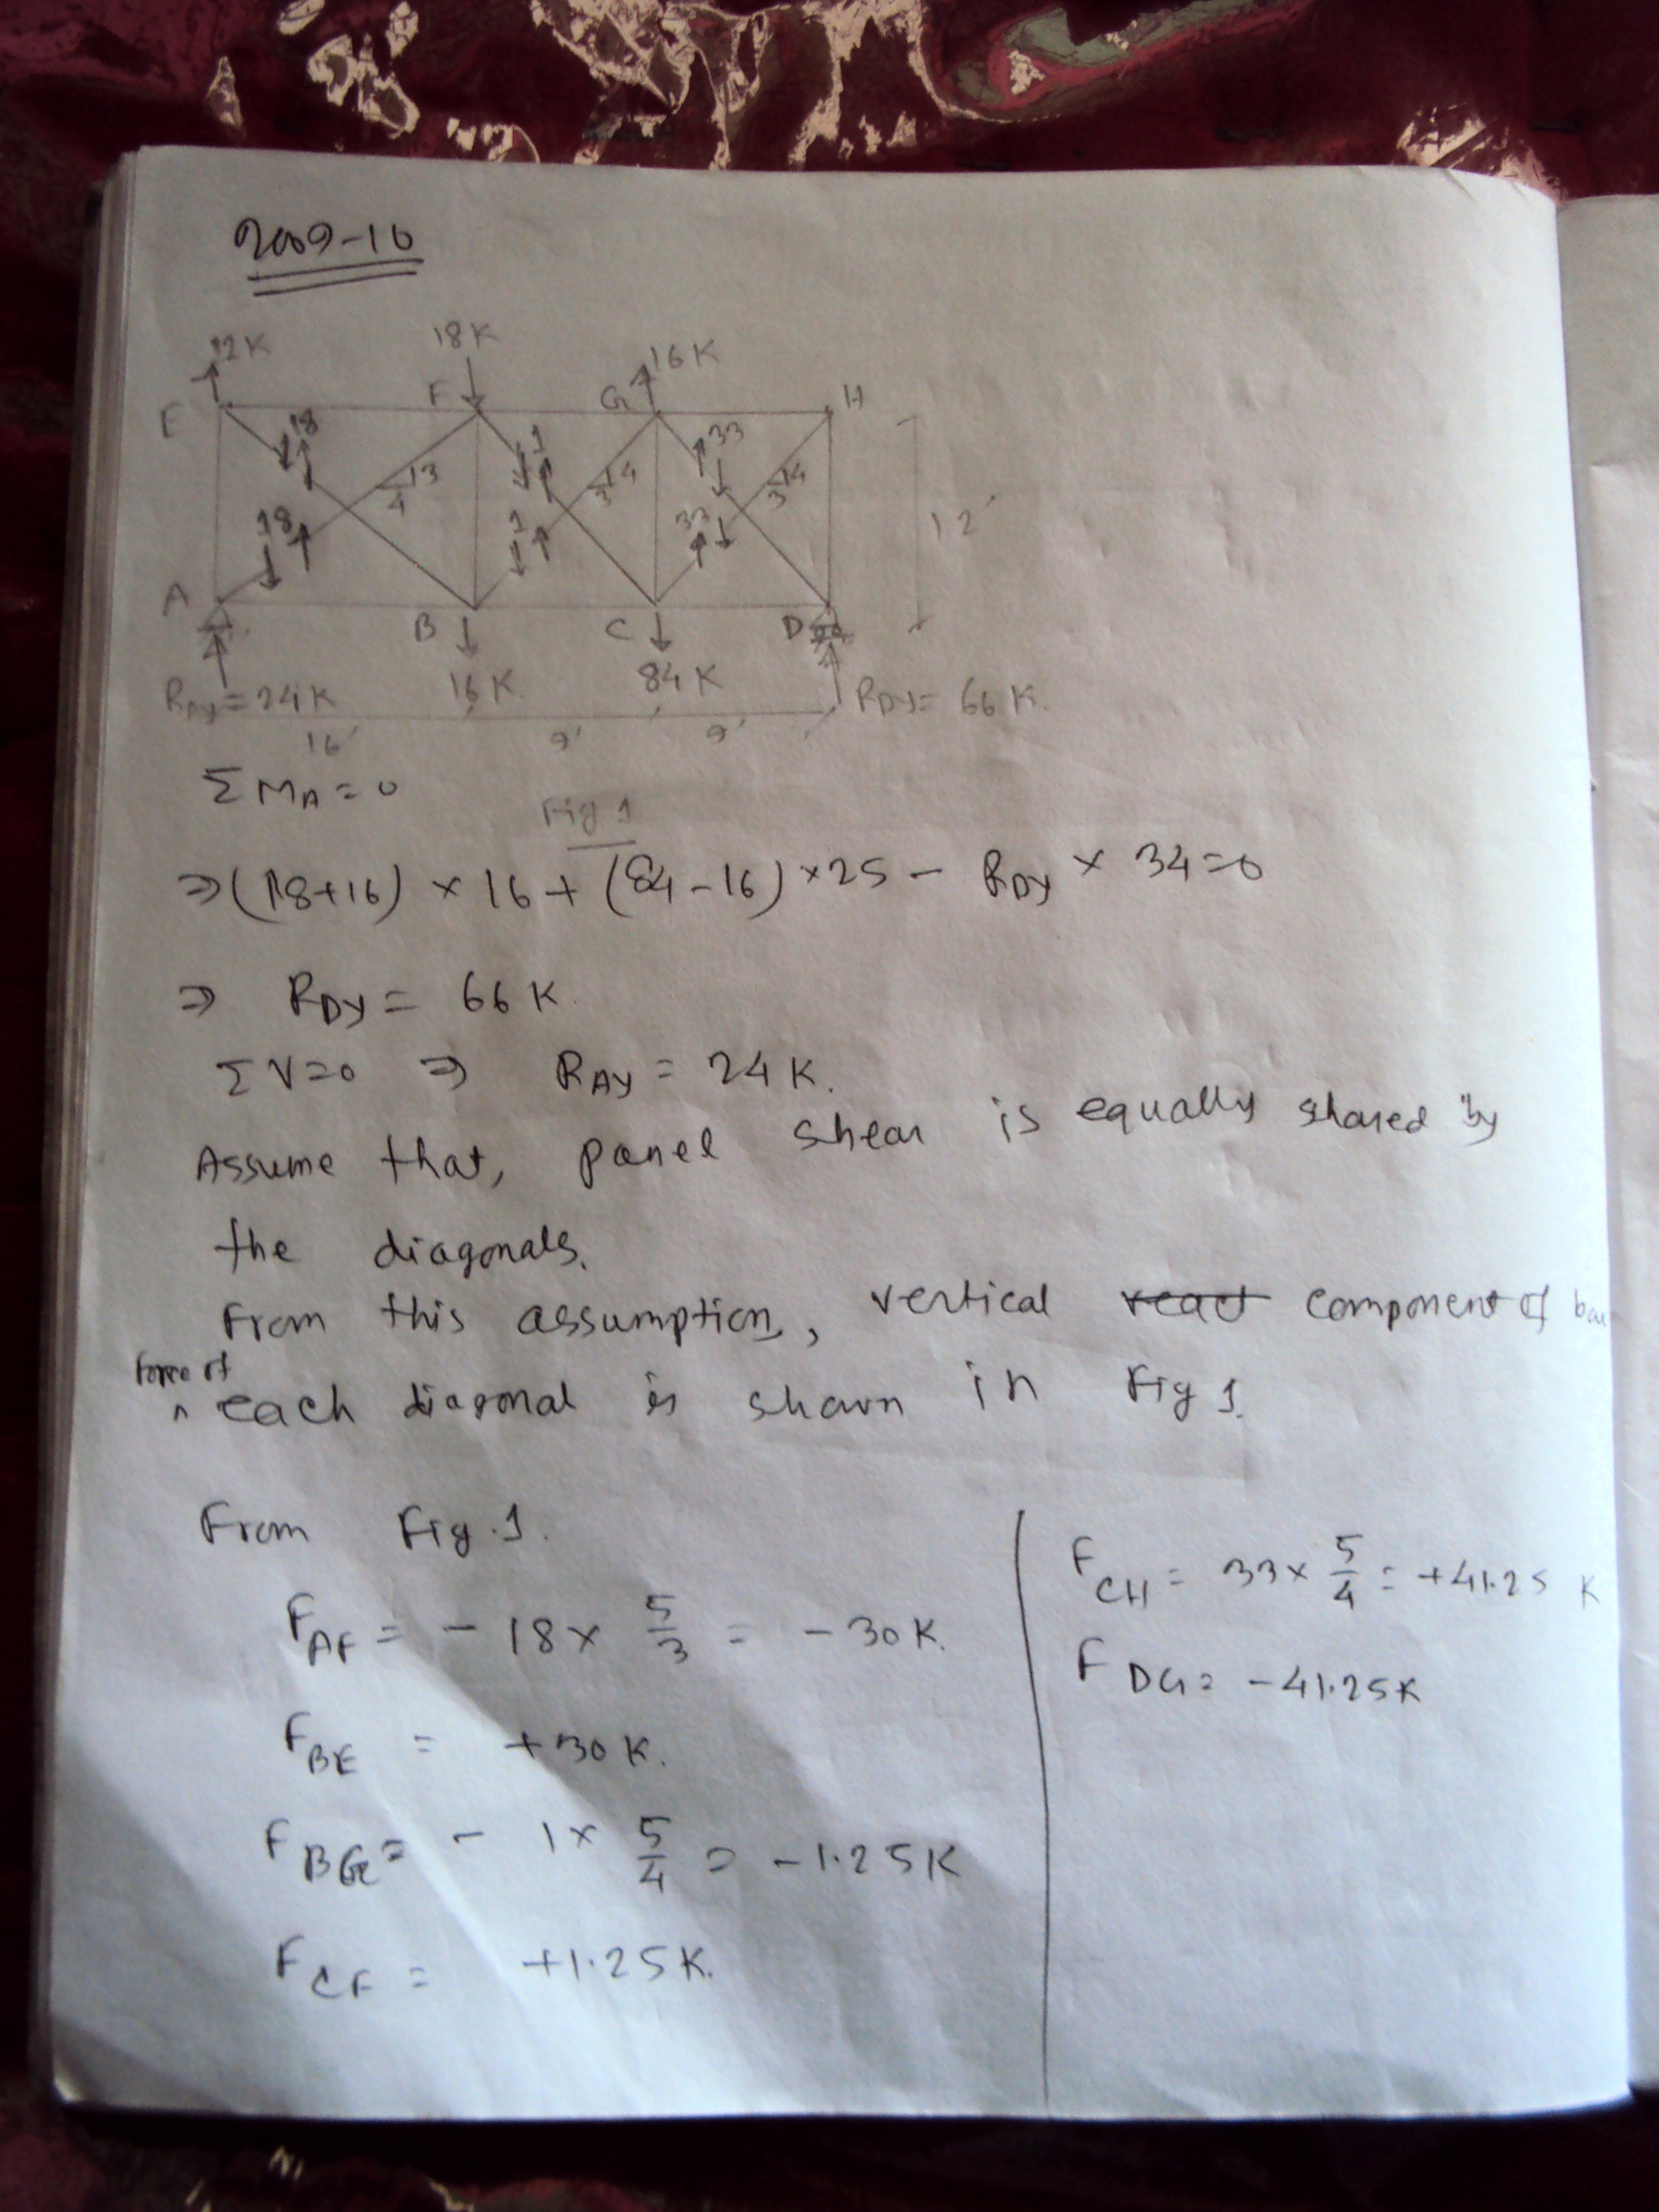 2009-10
12K
18K
16K
E
F
G
H
18
1
33
3
4
4
3
4
3
18
1
33
12'
A
B
C
D
R_AY = 24K
16K.
84K
R_DY = 66K.
16'
9'
9'
ΣM_A = 0
Fig 1
⇒ (18+16) × 16 + (84-16) × 25 - R_DY × 34 = 0
⇒ R_DY = 66K.
ΣV=0 ⇒ R_AY = 24K.
Assume that, panel shear is equally shared by
the diagonals.
From this assumption, vertical react component of
force of
^ each diagonal is shown in Fig 1.
From Fig.1.
F_AF = - 18 × 5/3 = - 30K.
F_BE = +30K.
F_BG = - 1 × 5/4 = -1.25K
F_CF = +1.25K.
F_CH = 33 × 5/4 = +41.25 K
F_DG = -41.25K